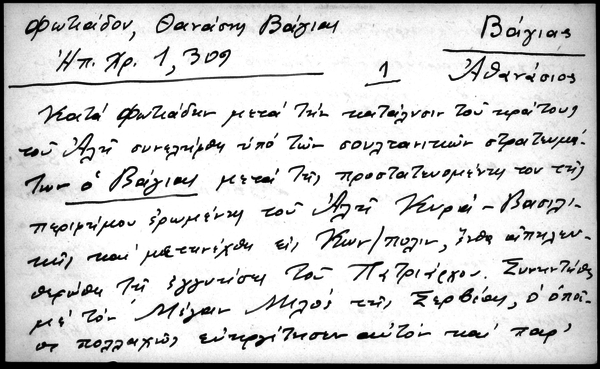 Φωτιάδου, Θανάσης Βάγιας
Ἠπ. Χρ. 1, 309
Βάγιας
1 Ἀθανάσιος
Κατά Φωτιάδην μετά τήν κατάλυσιν τοῦ κράτους
τοῦ Ἀλῆ συνελήφθη ὑπό τῶν σουλτανικῶν στρατευμά-
των ὁ Βάγιας μετά τῆς προστατευομένης του τῆς
περιφήμου ἐρωμένης τοῦ Ἀλῆ Κυρά-Βασιλι-
κῆς καί μετηνέχθη εἰς Κων/πολιν, ἔνθα ἀπηλευ-
θερώθη τῇ ἐγγυήσει τοῦ Πατριάρχου. Συνηντήθη
μέ τόν Μέγαν Μιλός τῆς Σερβίας, ὁ ὁποῖ-
ος πολλαχῶς εὐηργέτησεν αὐτόν καί παρ'